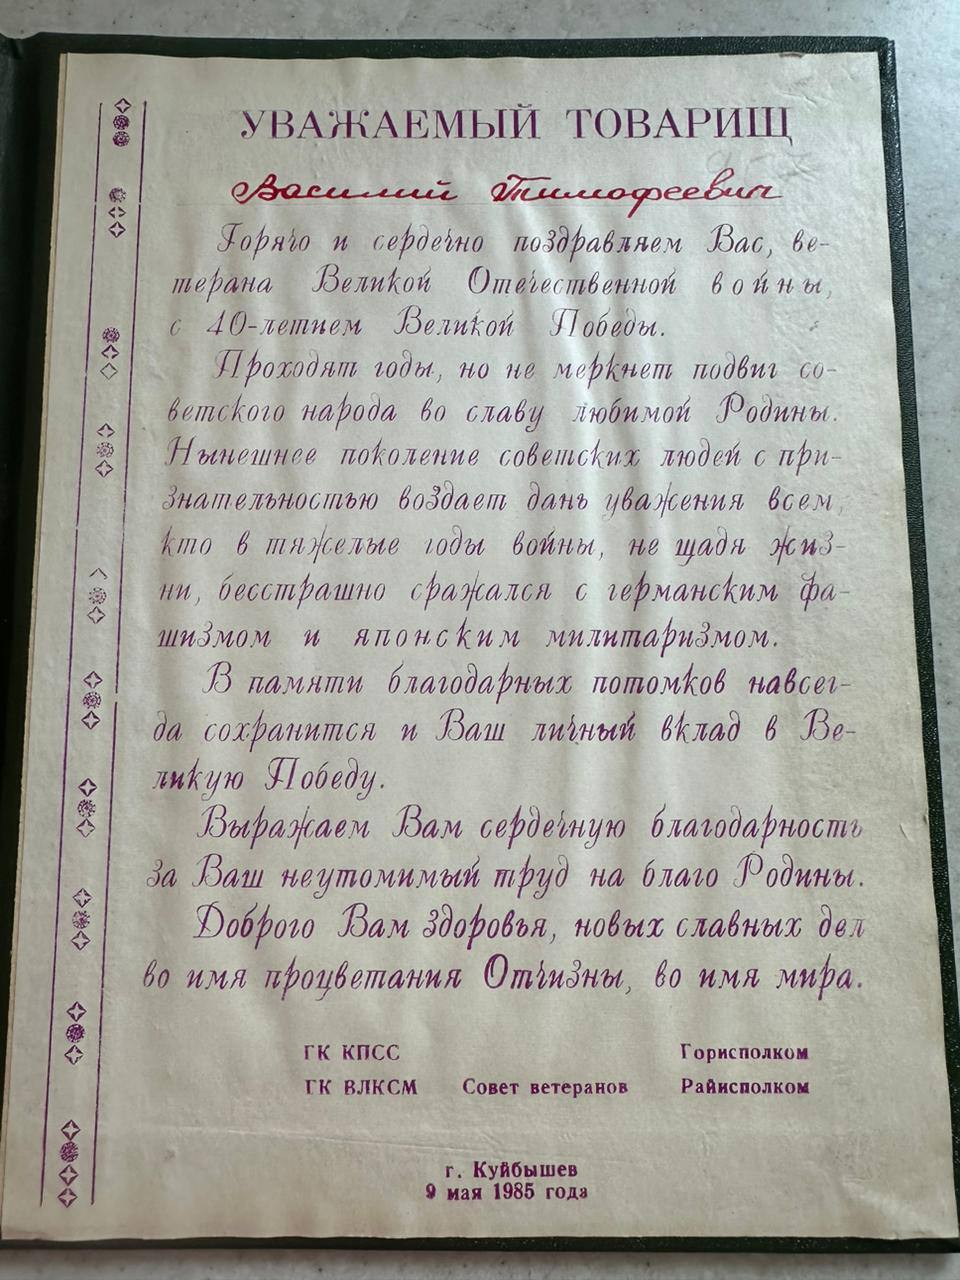 УВАЖАЕМЫЙ ТОВАРИЩ
Василий Тимофеевич
Горячо и сердечно поздравляем Вас, ве-
терана Великой Отечественной войны,
с 40-летием Великой Победы.
Проходят годы, но не меркнет подвиг со-
ветского народа во славу любимой Родины.
Нынешнее поколение советских людей с при-
знательностью воздает дань уважения всем,
кто в тяжелые годы войны, не щадя жиз-
ни, бесстрашно сражался с германским фа-
шизмом и японским милитаризмом.
В памяти благодарных потомков навсег-
да сохранится и Ваш личный вклад в Ве-
ликую Победу.
Выражаем Вам сердечную благодарность
за Ваш неутомимый труд на благо Родины.
Доброго Вам здоровья, новых славных дел
во имя процветания Отчизны, во имя мира.
ГК КПСС Горисполком
ГК ВЛКСМ Совет ветеранов Райисполком
г. Куйбышев
9 мая 1985 года